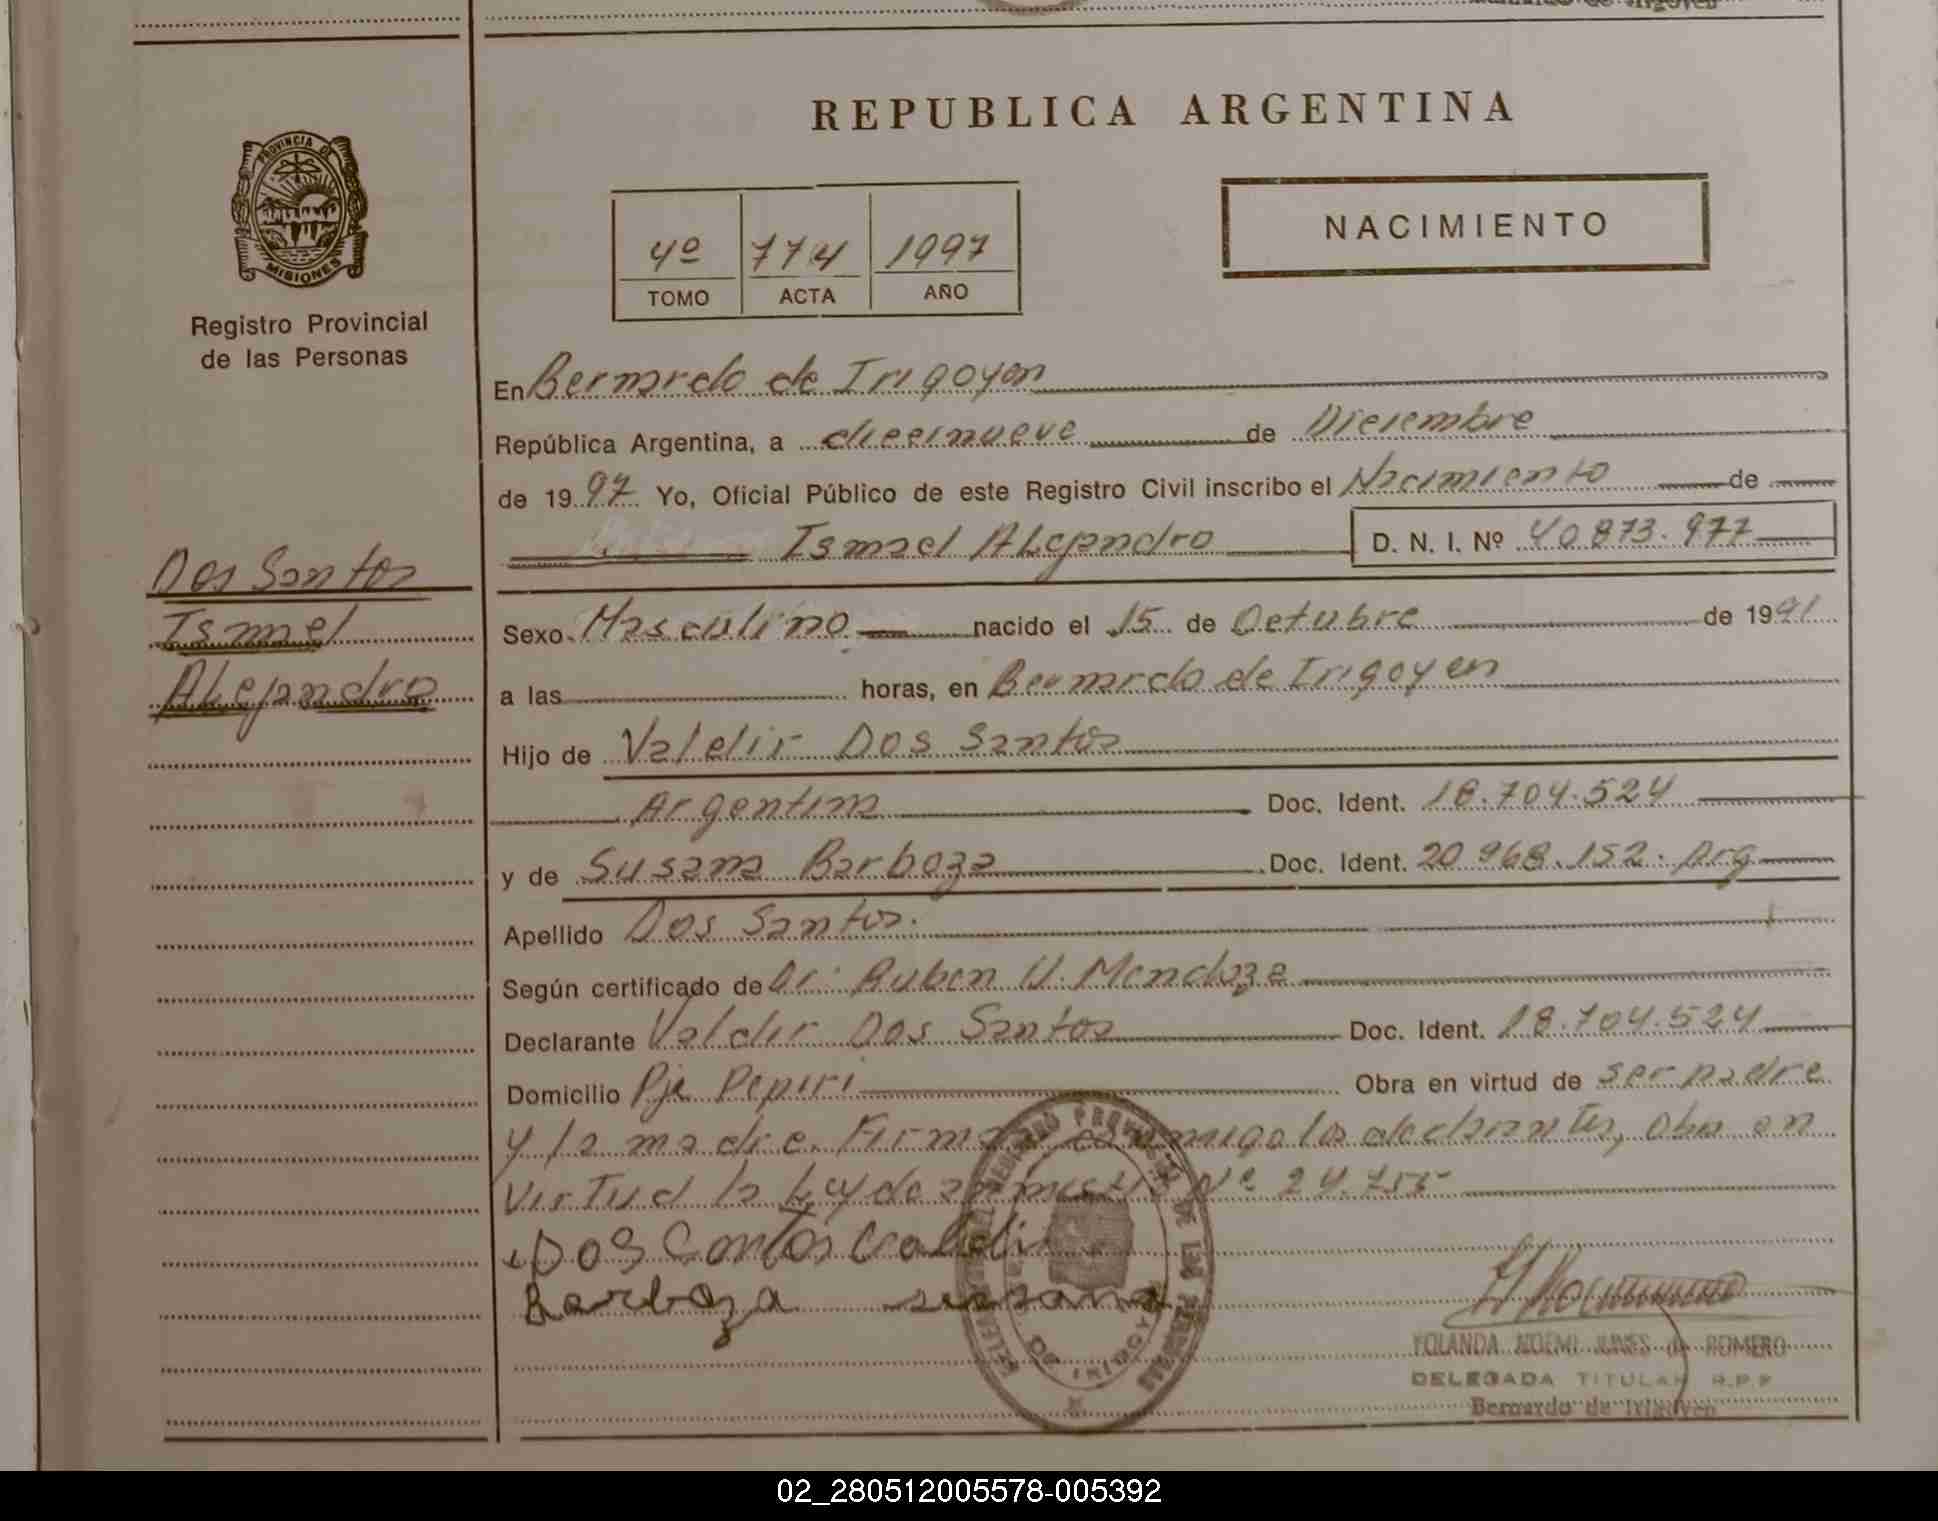 REPUBLICA ARGENTINA
PROVINCIA DE
MISIONES
Registro Provincial
de las Personas
4º 774 1997
TOMO ACTA AÑO
NACIMIENTO
En Bernardo de Irigoyen
República Argentina, a diecinueve de Diciembre
de 1997. Yo, Oficial Público de este Registro Civil inscribo el Nacimiento de
Ismael Alejandro D. N. I. Nº 40.873.977
Dos Santos
Ismael
Alejandro
Sexo Masculino nacido el 15 de Octubre de 1991
a las horas, en Bernardo de Irigoyen
Hijo de Valdir Dos Santos
Argentina Doc. Ident. 18.704.524
y de Susana Barboza Doc. Ident. 20.968.152. Arg
Apellido Dos Santos.
Según certificado de Dr. Ruben Mendoza
Declarante Valdir Dos Santos Doc. Ident. 18.704.524
Domicilio Pje Pepiri Obra en virtud de ser padre
y la madre. Firman conmigo los declarantes, obra en
Virtud la Ley de amnistia Nº 24.755
Dos Santos Valdir
Barboza susana
YOLANDA NOEMI JUNES de ROMERO
DELEGADA TITULAR R.P.P
Bernardo de Irigoyen
02_280512005578-005392